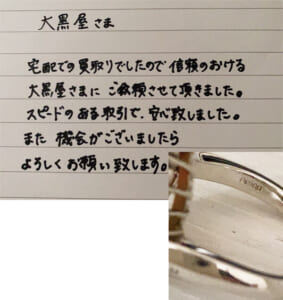 大黒屋さま
宅配での買取りでしたので信頼のおける
大黒屋さまにご依頼させて頂きました。
スピードのある取引で、安心致しました。
また機会がございましたら
よろしくお願い致します。